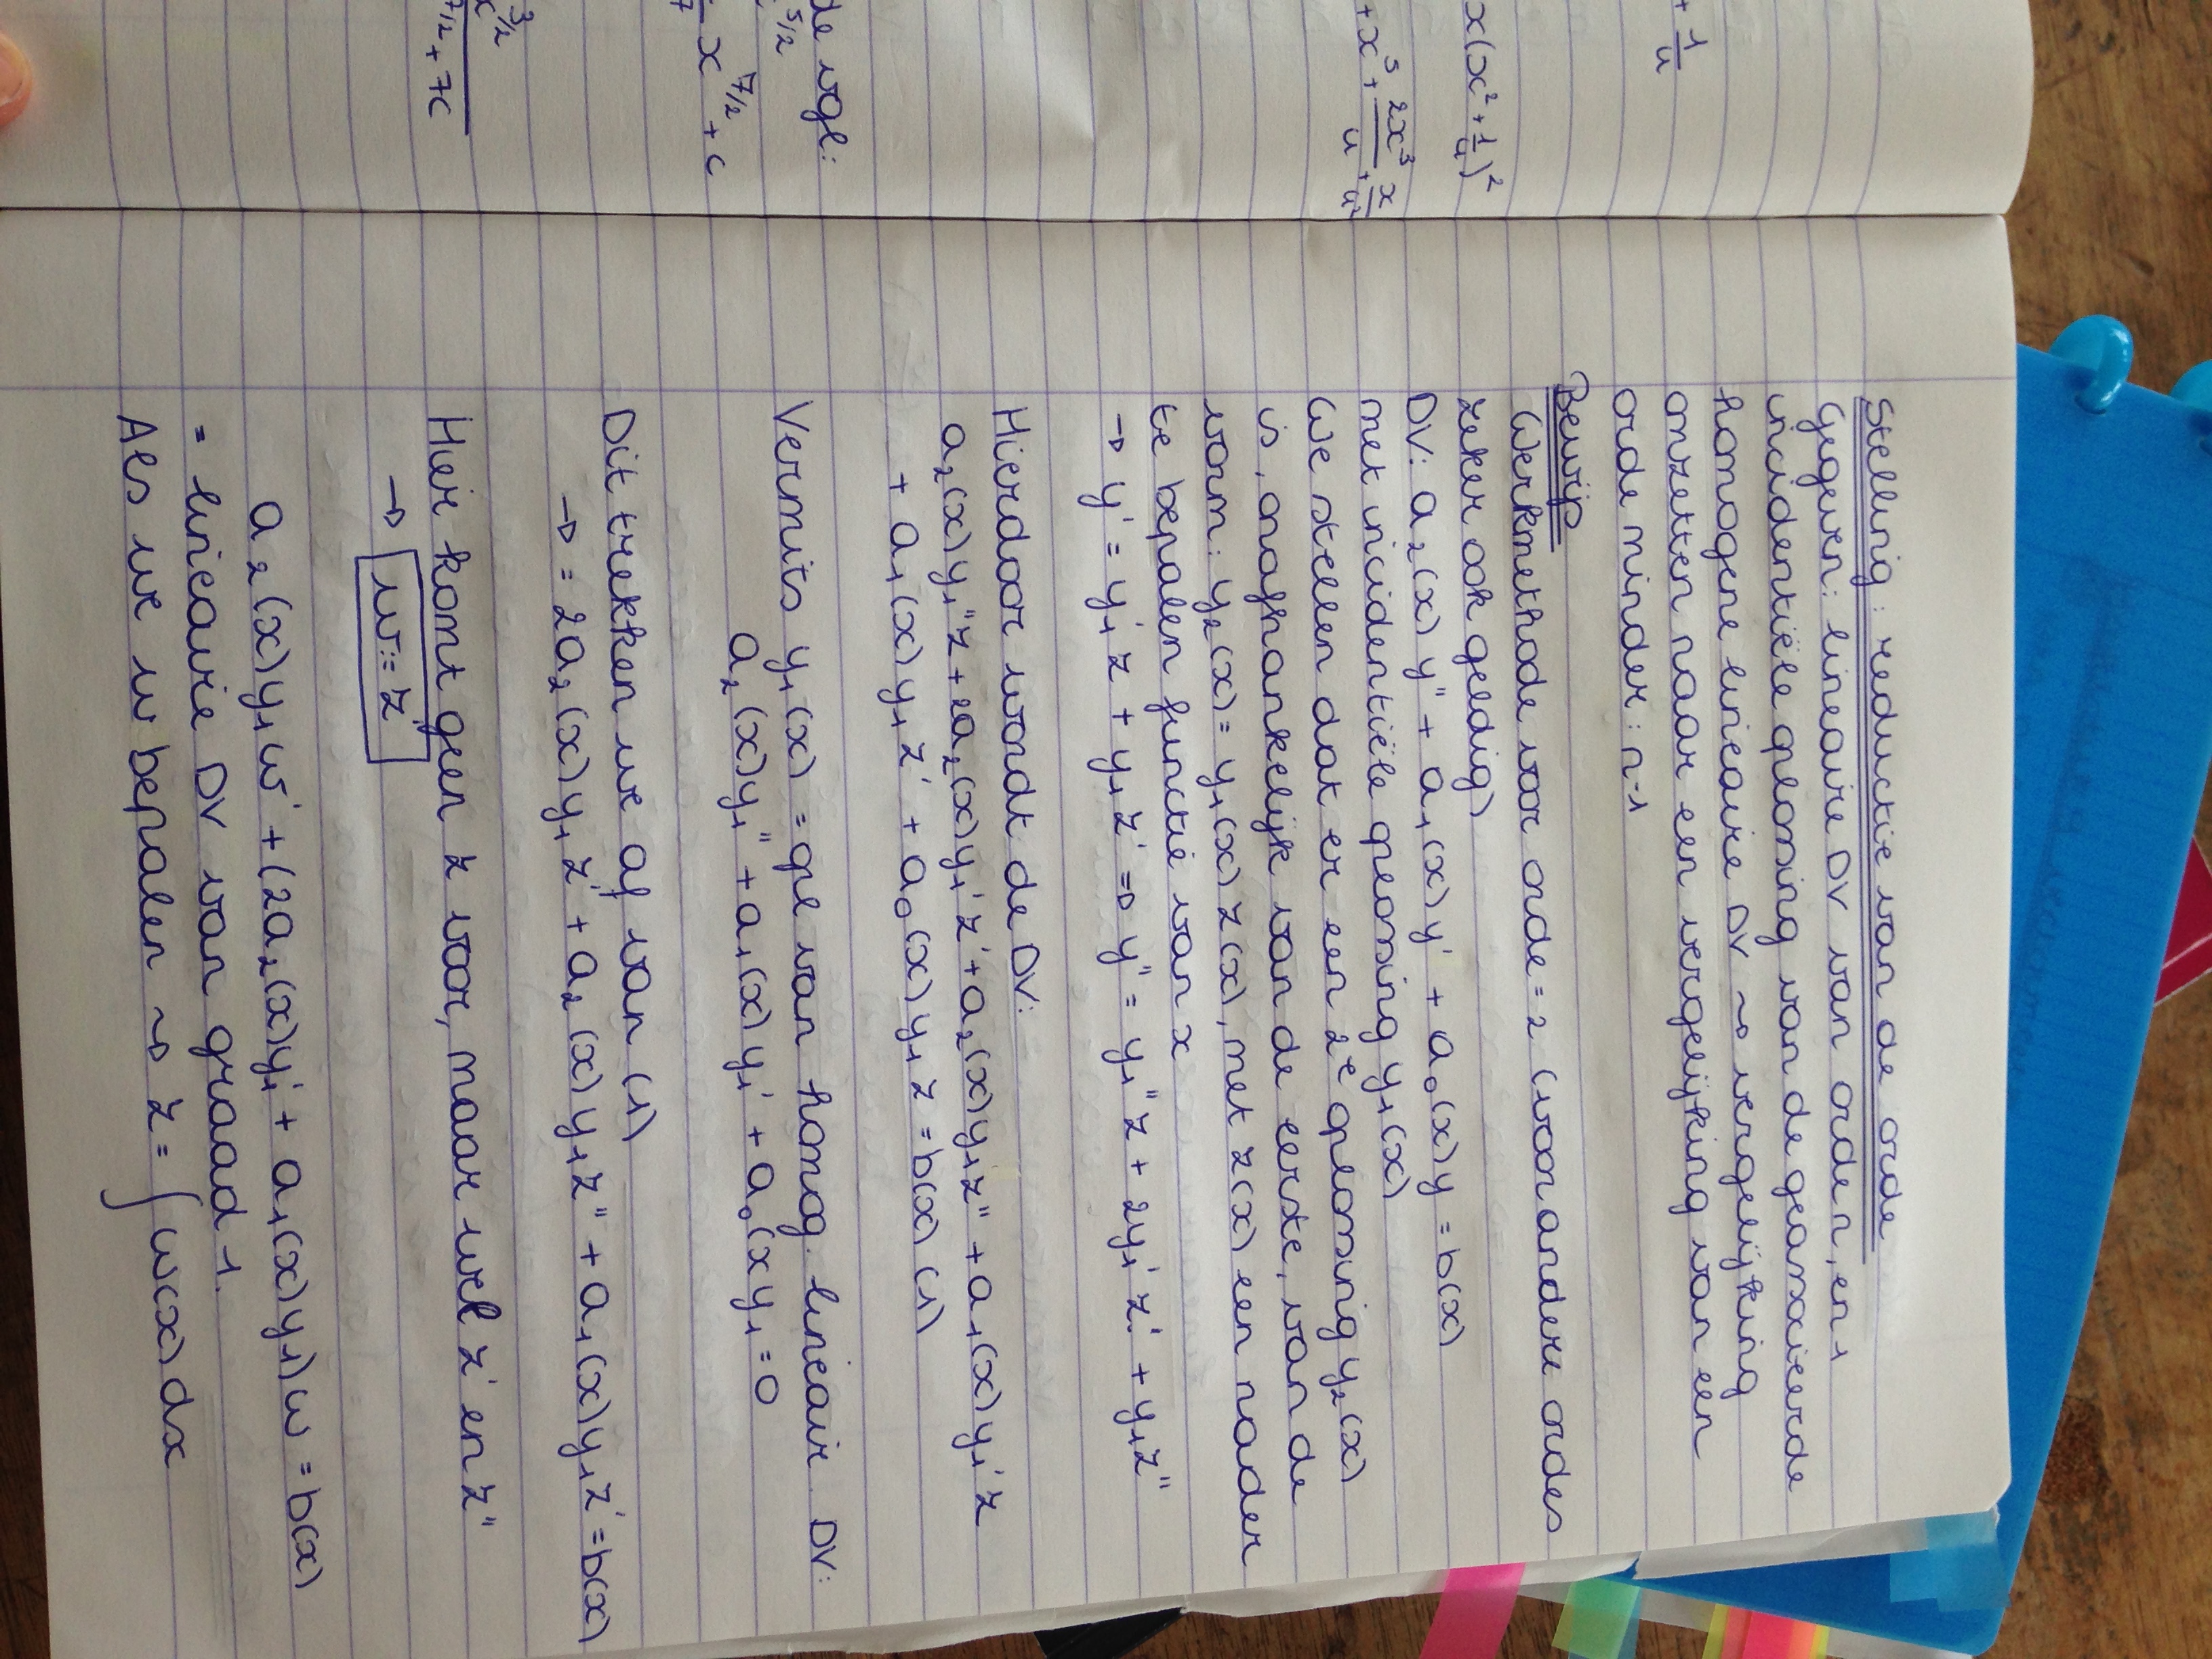 + 1/4
x(x² + 1/4)²
+ x⁵ + 2x³/4 + x/4²
de vgl:
5/2
x^7/2 + c
7
3/2
7/2 + 7c
Stelling: reductie van de orde
Gegeven: lineaire DV van orde n, en 1
incidentiële oplossing van de geassocieerde
homogene lineaire DV ⇝ vergelijking
omzetten naar een vergelijking van een
orde minder: n-1
Bewijs
Werkmethode voor orde = 2 (voor andere ordes
zeker ook geldig)
DV: a₂(x) y'' + a₁(x) y' + a₀(x) y = b(x)
met incidentiële oplossing y₁(x)
We stellen dat er een 2e oplossing y₂(x)
is, onafhankelijk van de eerste, van de
vorm: y₂(x) = y₁(x) z(x), met z(x) een nader
te bepalen functie van x
→ y' = y₁' z + y₁ z' ⇒ y'' = y₁'' z + 2y₁' z' + y₁z''
Hierdoor wordt de DV:
a₂(x)y₁''z + 2a₂(x)y₁'z' + a₂(x)y₁z'' + a₁(x)y₁'z
+ a₁(x)y₁z' + a₀(x)y₁z = b(x) (1)
Vermits y₁(x) = opl van homog. lineair DV:
a₂(x)y₁'' + a₁(x)y₁' + a₀(x y₁ = 0
Dit trekken we af van (1)
→ = 2a₂(x)y₁ z' + a₂(x)y₁z'' + a₁(x)y₁z' = b(x)
Hier komt geen z voor, maar wel z' en z''
→ w := z'
a₂(x)y₁w' + (2a₂(x)y₁' + a₁(x)y₁)w = b(x)
= lineaire DV van graad 1.
Als we w bepalen ⇝ z = ∫ w(x) dx